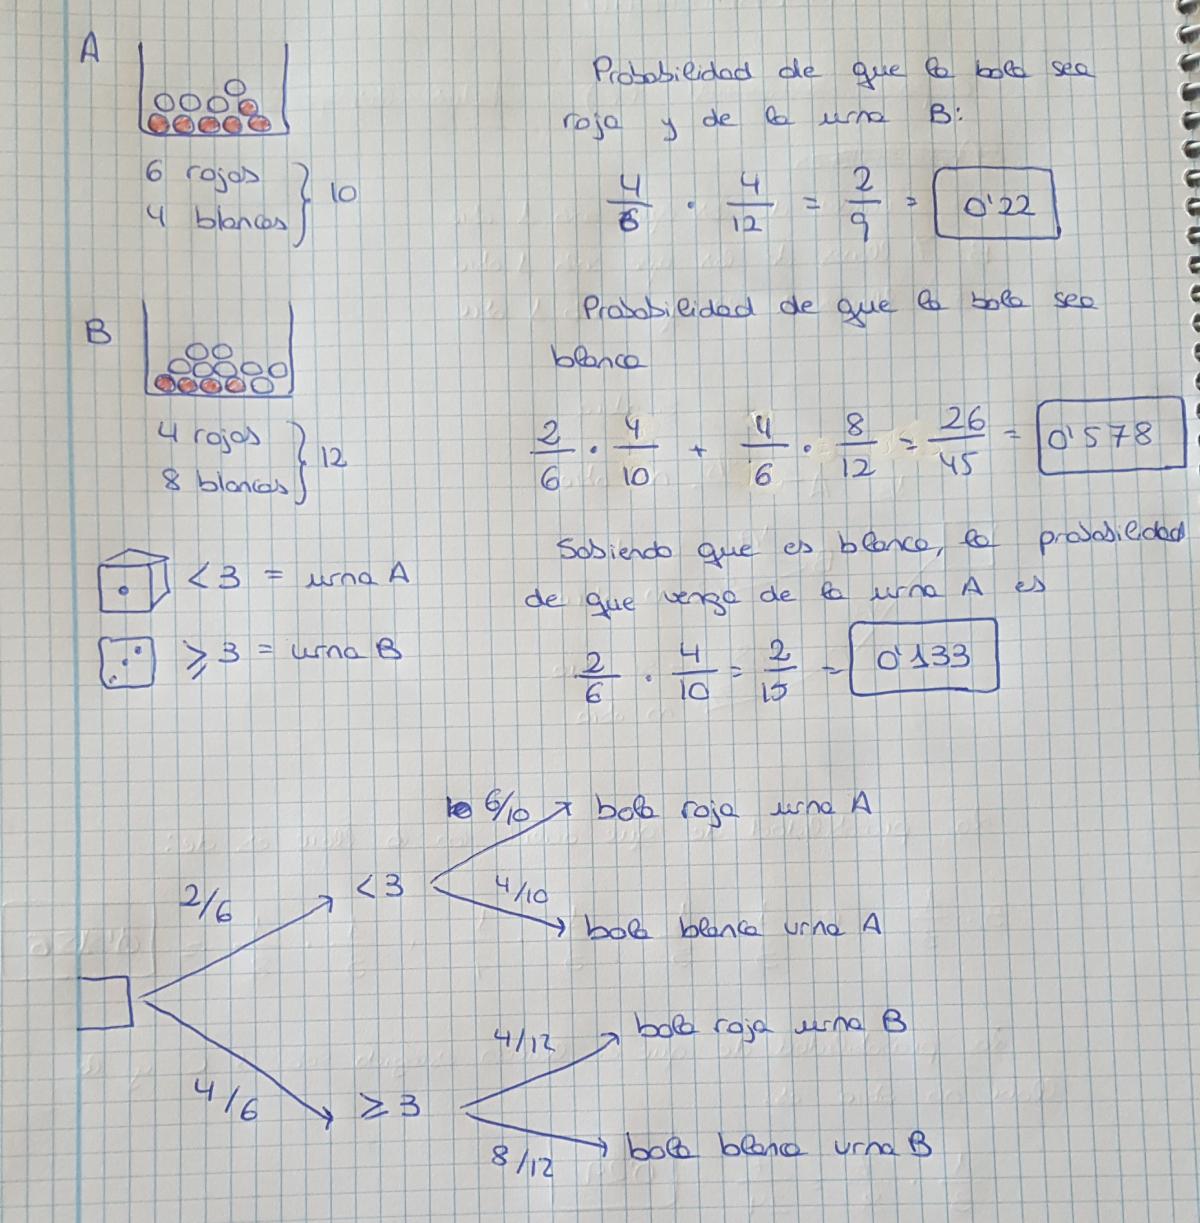 A
6 rojas
4 blancas
10
Probabilidad de que la bola sea
roja y de la urna B:
4/6 · 4/12 = 2/9 = 0'22
B
4 rojas
8 blancas
12
Probabilidad de que la bola sea
blanca
2/6 · 4/10 + 4/6 · 8/12 = 26/45 = 0'578
< 3 = urna A
≥ 3 = urna B
Sabiendo que es blanca, la probabilidad
de que venga de la urna A es
2/6 · 4/10 = 2/15 = 0'133
6/10 bola roja urna A
2/6 < 3
4/10 bola blanca urna A
4/12 bola roja urna B
4/6 ≥ 3
8/12 bola blanca urna B